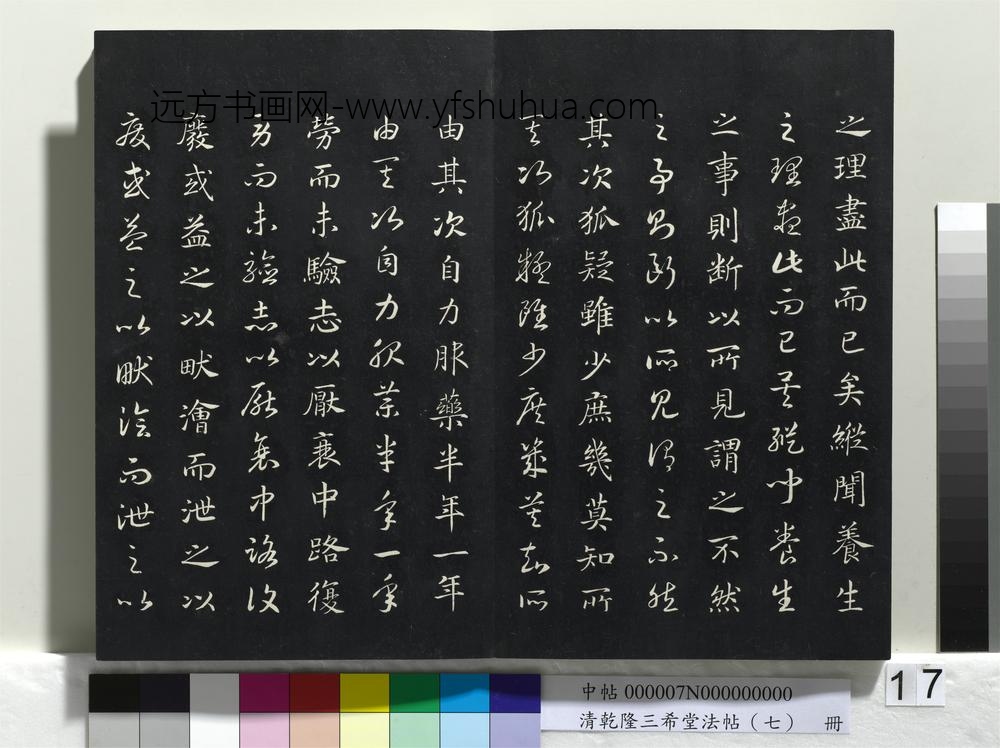 远方书画网-www.yfshuhua.com
之理盡此而已矣縱聞養生
之理盡此而已矣縱聞養生
之事則断以所見謂之不然
之事則断以所見謂之不然
其次狐疑雖少庶幾莫知所
其次狐疑雖少庶幾莫知所
由其次自力服藥半年一年
由其次自力服藥半年一年
勞而未驗志以厭衰中路復
勞而未驗志以厭衰中路復
廢或益之以畎澮而泄之以
廢或益之以畎澮而泄之以
中帖 000007N000000000
清乾隆三希堂法帖（七） 冊
17